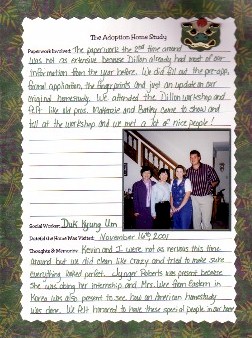 The Adoption Home Study
Paperwork Involved: The paperwork the 2nd time around
was not as extensive because Dillon already had most of our
information from the year before. We did fill out the pre-app,
formal application, the fingerprints and just an update on our
original homestudy. We attended the Dillon workshop and
felt like old pros. Mackenzie and Barkley came to show and
tell at the workshop and we met a lot of nice people!
Social Worker: Duk Kyung Um
Date(s) the Home Was Visited: November 16th 2001
Thoughts & Memories: Kevin and I were not as nervous this time
around but we did clean like crazy and tried to make sure
everything looked perfect. Roberts was present because
she was doing her internship and Mrs. Wee from Eastern in
Korea was also present to see how an American homestudy
was done. We felt honored to have these special people in our home